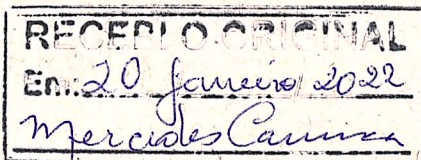 RECEPI O ORIGINAL
Em: 20 Janeiro 2022
Mercedes